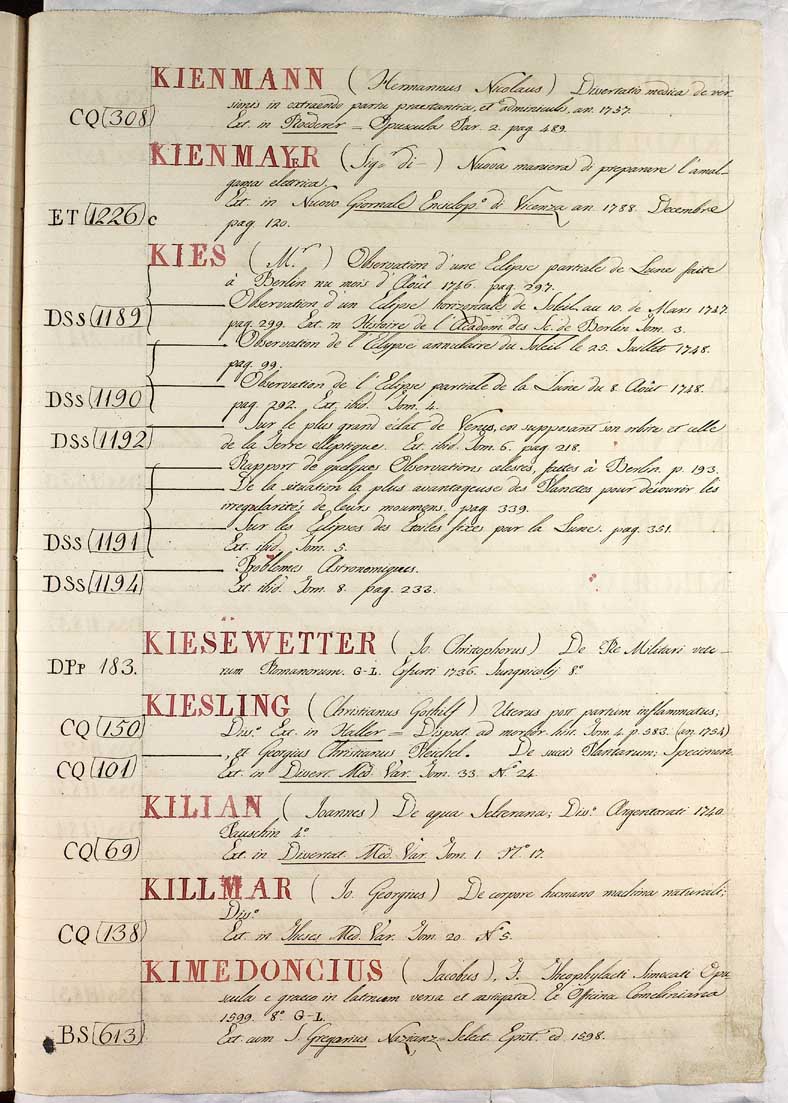 KIENMANN (Hermannus Nicolaus) Dissertatio medica de ver
sionis in extraendo partu praestantia, et adminiculis, an. 1737.
CQ (308) Ext. in Roederer = Opuscula Par. 2. pag. 489.
KIENMAYER (Sig.r di –) Nuova maniera di preparare l'amal-
gama elettrica.
ET (1226) c Ext. in Nuovo Giornale Enciclop.o di Vicenza an. 1788. Decembre
pag. 120.
KIES (M.r) Observation d'une Eclipse partiale de Lune faite
à Berlin au mois d'Août 1746. pag. 297.
Observation d'un Eclipse horizontale de Soleil au 10. de Mars 1747.
DSs (1189) pag. 299. Ext. in Histoire de l'Academ. des Sc. de Berlin Tom. 3.
Observation de l'Elypse annulaire du Soleil le 25. Juillet 1748.
pag. 99.
Observation de l'Eclipse partiale de la Lune du 8. Août 1748.
DSs (1190) pag. 292. Ext. ibid. Tom. 4.
Sur le plus grand eclat de Venus, en supposant son orbite et celle
DSs (1192) de la Terre elleptique. Ext. ibid. Tom. 6. pag. 218.
Rapport de quelques Observations celestes, faites à Berlin. p. 193.
De la situation la plus avantageuse des Planetes pour decouvrir les
irregularités de leurs mouvmens. pag. 339.
Sur les Eclipses des Etoiles fixes par la Lune. pag. 351.
DSs (1191) Ext. ibid. Tom. 5.
Problomes Astronomiques.
DSs (1194) Ext. ibid. Tom. 8. pag. 233.
KIESEWETTER (Io. Christophorus) De Re Militari vete-
DPp 183. rum Romanorum. G-L. Erfurti 1736. Jungnicolij 8.o
KIESLING (Christianus Gothilf) Uterus post partum inflammatus;
CQ (150) Diss.o Ext. in Haller = Disput. ad morbor. hist. Tom. 4. p. 583. (an. 1754)
, et Georgius Christianus Reichel. De sucis Plantarum; Specimen.
CQ (101) Ext. in Dissert. Med. Var. Tom. 33. N.o 24.
KILIAN (Ioannes) De aqua Selterana; Dis.o Argentorati 1740.
Pauschin 4.o
CQ (69) Ext. in Dissertat. Med. Var. Tom. 1. N.o 17.
KILLMAR (Io. Georgius) De corpore humano machina naturali;
Dis.o
CQ (138) Ext. in Theses Med. Var. Tom. 20. N.o 5.
KIMEDONCIUS (Jacobus), J. Theophylacti Simocati Opu
scula e graeco in latinum versa et castigata. Ex Officina Comeliniana
1599. 8.o G-L.
BS (613) Ext. cum S. Gregorius Nazianz = Select. Epist. ed. 1598.